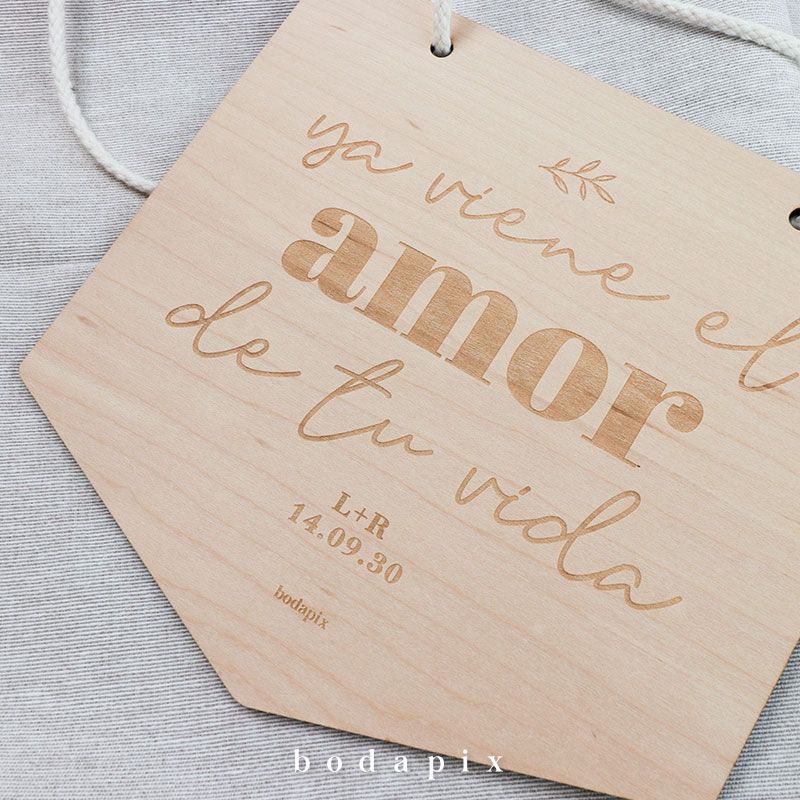 ya viene el
amor
de tu vida
L+R
14.09.30
bodapix
bodapix